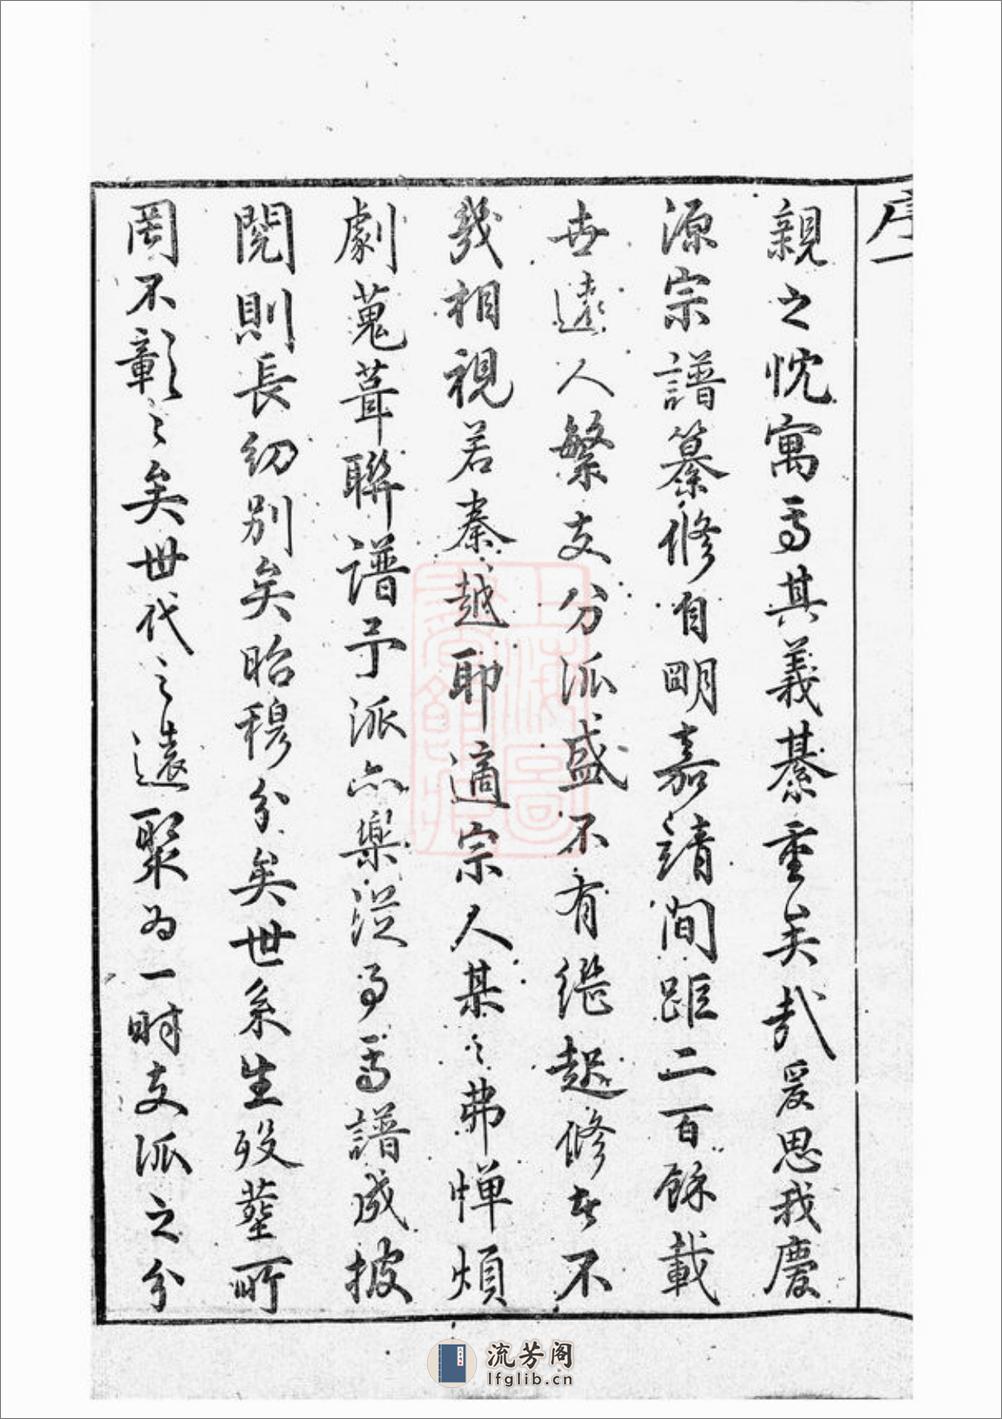 序一
親之忱寓焉其義綦重矣哉爰思我慶
源宗譜纂修自明嘉靖間距二百餘載
世遠人繁支分派盛不有繼起修者不
幾相視若秦越耶適宗人某〻弗憚煩
劇蒐葺聯譜予派亦樂從事焉譜成披
閱則長幼別矣昭穆分矣世系生歿塟所
罔不彰〻矣世代之遠聚為一時支派之分
上海圖書館藏
流芳阁
lfglib.cn